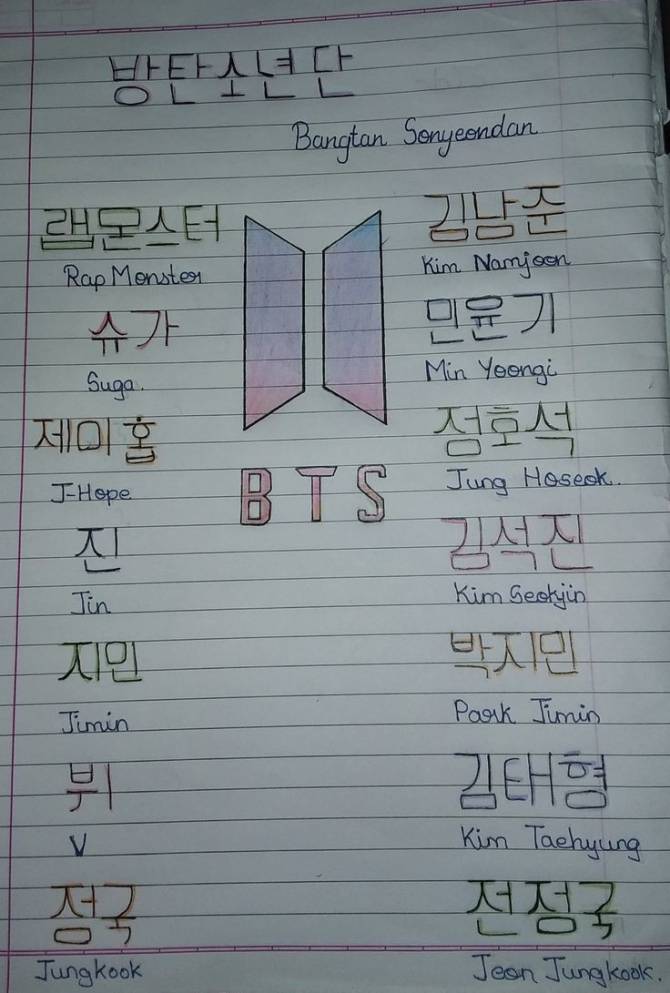 방탄소년단
Bangtan Sonyeondan
랩몬스터
Rap Monster
슈가
Suga.
제이홉
J-Hope
진
Jin
지민
Jimin
뷔
V
정국
Jungkook
BTS
김남준
Kim Namjoon
민윤기
Min Yoongi
정호석
Jung Hoseok.
김석진
Kim Seokjin
박지민
Park Jimin
김태형
Kim Taehyung
전정국
Jeon Jungkook.